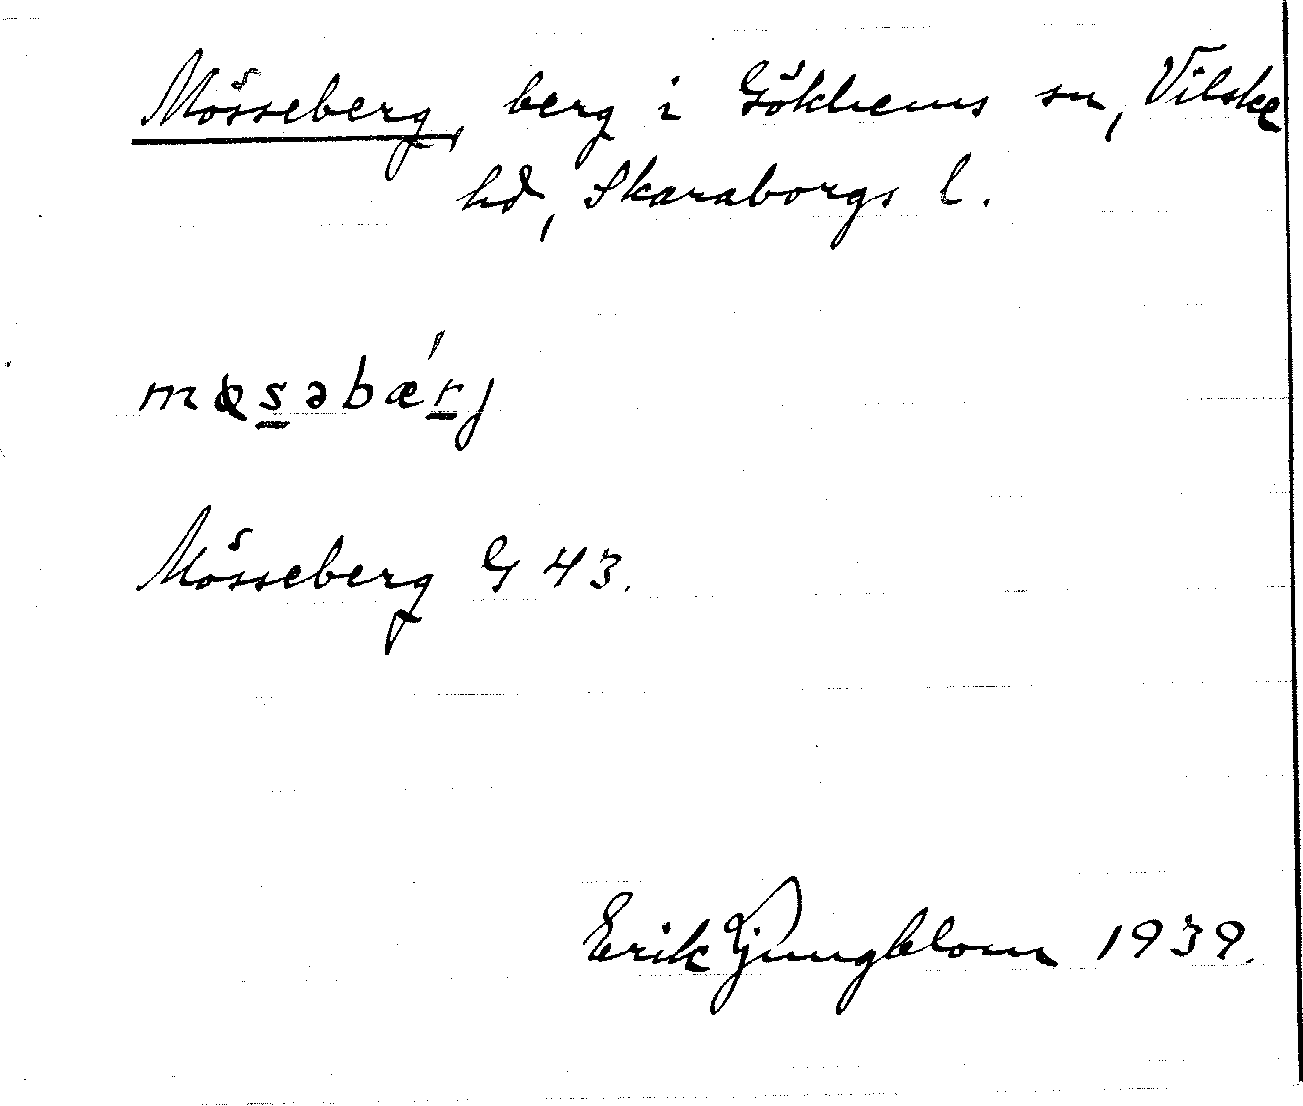 Mösseberg, berg i Gökhems sn, Vilske
hd, Skaraborgs l.
møsəbǽrj
Mösseberg G 43.
Erik Ljungblom 1939.